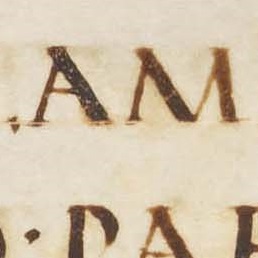 AM
· PAP